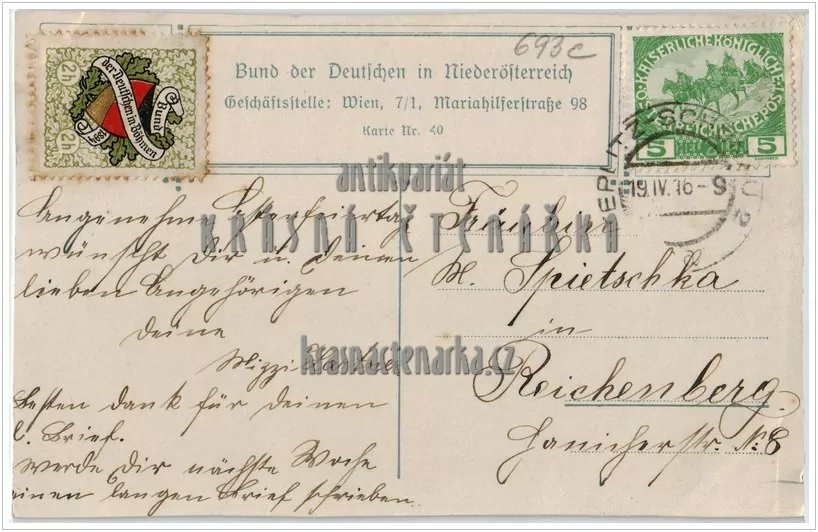 693c
2h
2h
Bund
der Deutschen in Böhmen
1894
2h
2h
Bund der Deutschen in Niederösterreich
Geschäftsstelle: Wien, 7/1, Mariahilferstraße 98
Karte Nr. 40
KAISERLICHE KÖNIGLICHE
ÖSTERREICHISCHE POST
5 5
19.IV.16-8
antikvariát
KRÁSNÁ ČTENÁŘKA
krasnactenarka.cz
Angenehme Osterfeiertag
wünscht Dir u. Deinen
lieben Angehörigen
Deine
Mizzi
Besten Dank für Deinen
l. Brief.
Werde Dir nächste Woche
einen langen Brief schreiben.
Fräulein
M. Spietschka
in
Reichenberg.
Hanicherstr. № 8